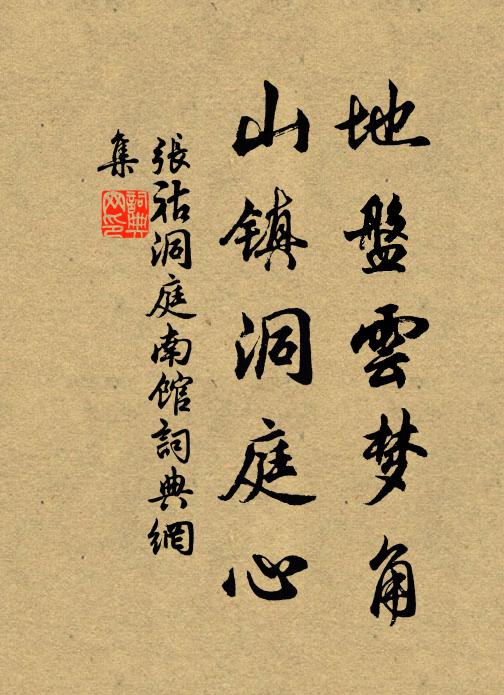 地盤雲梦角
山镇洞庭心
張祜洞庭南馆詞典網
集
詞典
网印